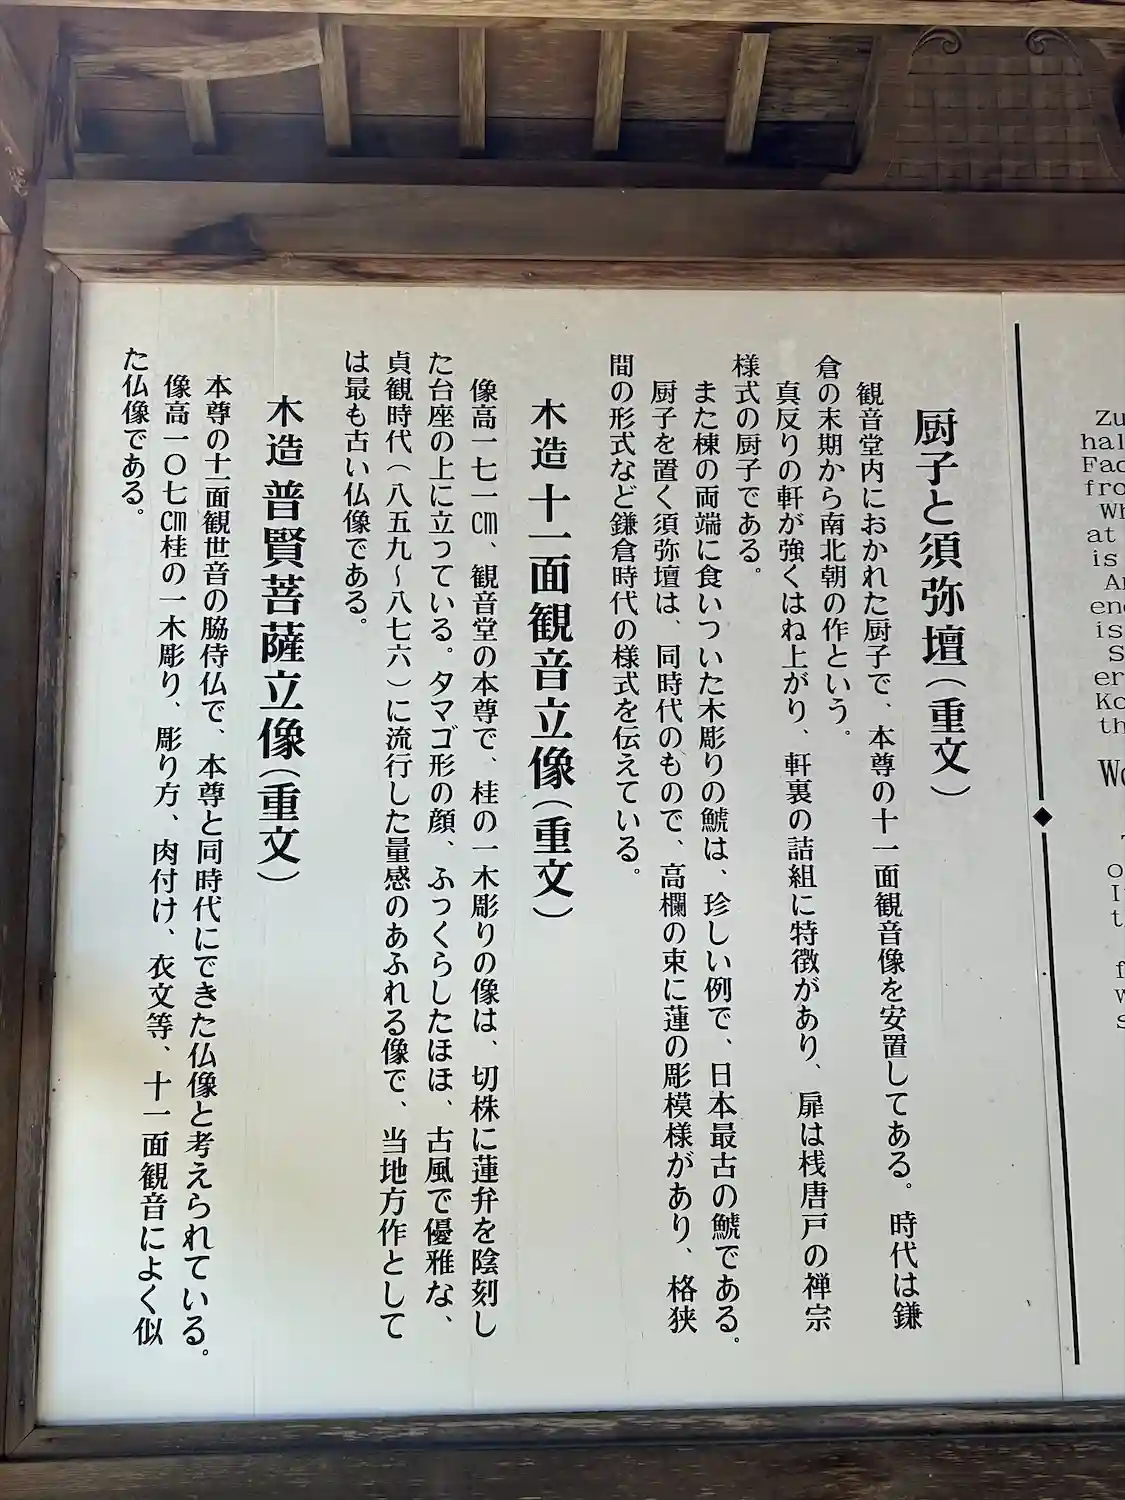 厨子と須弥壇(重文)
観音堂内におかれた厨子で、本尊の十一面観音像を安置してある。時代は鎌
倉の末期から南北朝の作という。
真反りの軒が強くはね上がり、軒裏の詰組に特徴があり、扉は桟唐戸の禅宗
様式の厨子である。
また棟の両端に食いついた木彫りの鯱は、珍しい例で、日本最古の鯱である。
厨子を置く須弥壇は、同時代のもので、高欄の束に蓮の彫模様があり、格狭
間の形式など鎌倉時代の様式を伝えている。
木造 十一面観音立像(重文)
像高一七一㎝、観音堂の本尊で、桂の一木彫りの像は、切株に蓮弁を陰刻し
た台座の上に立っている。タマゴ形の顔、ふっくらしたほほ、古風で優雅な、
貞観時代(八五九~八七六)に流行した量感のあふれる像で、当地方作として
は最も古い仏像である。
木造 普賢菩薩立像(重文)
本尊の十一面観世音の脇侍仏で、本尊と同時代にできた仏像と考えられている。
像高一〇七㎝桂の一木彫り、彫り方、肉付け、衣文等、十一面観音によく似
た仏像である。
Zu
hal
Fac
fro
Wh
at
is
Ar
end
is
S
er
Ko
th
Wo
o
I
t
f
w
s